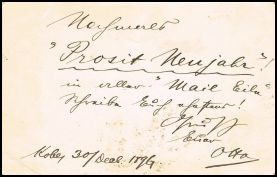 Nochmals
"Prosit Neujahr"!
in aller "Mail Eile"
Schreibe Euch
Gruß
Euer
Otto
Kobe, 30/Dec. 1896